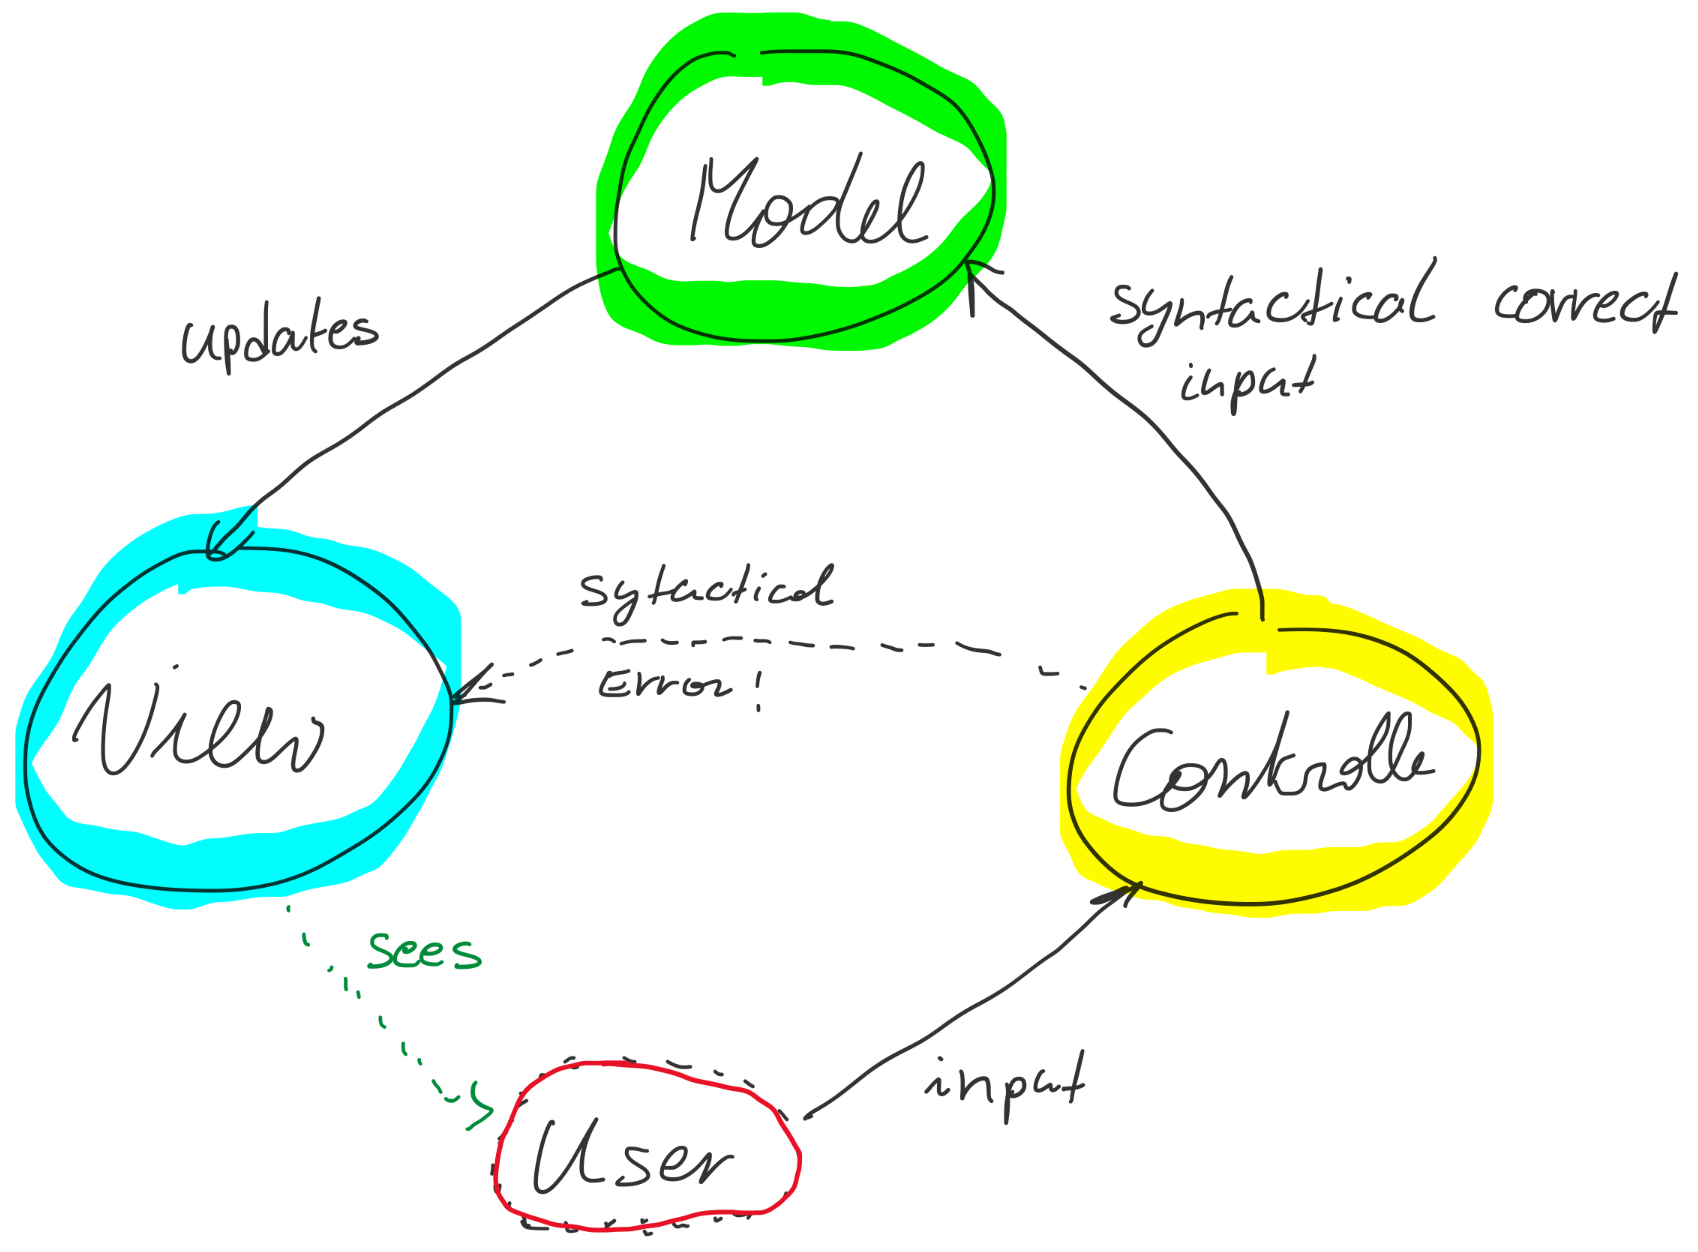 Model
updates
syntactical correct
input
sytactical
Error!
View
Controlle
sees
input
User